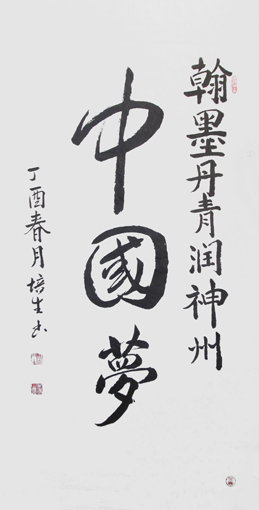 翰墨丹青润神州
中國夢
丁酉春月培生书